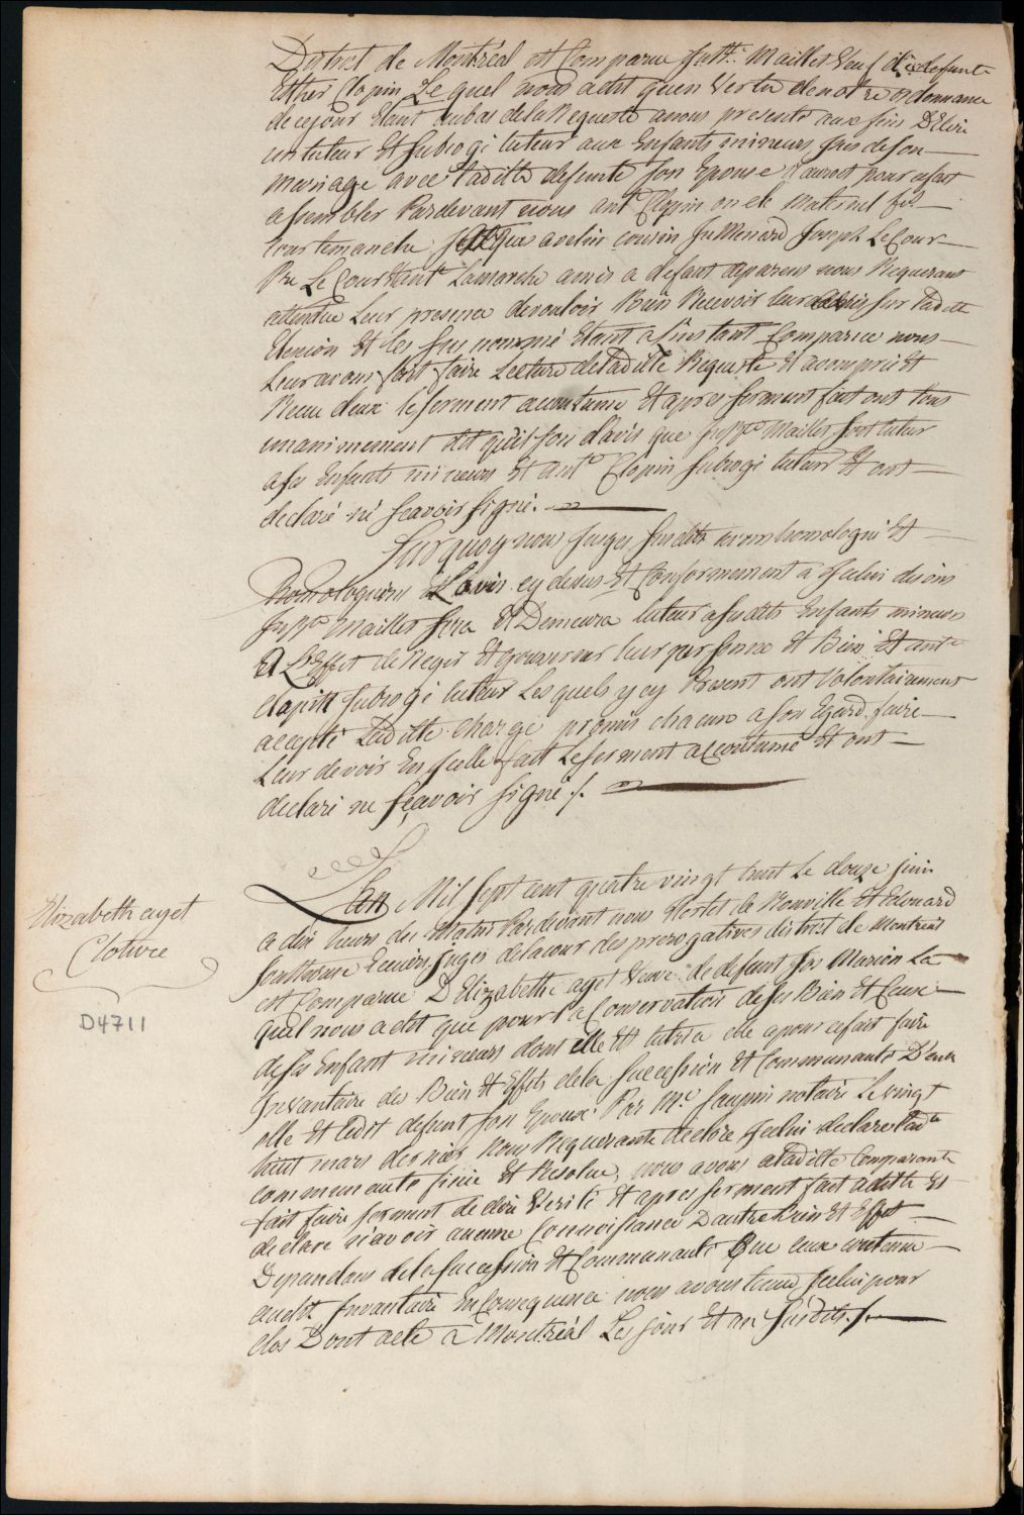 District de Montréal est Comparu Maillet Veuf de defunte
Esther Clopin Lequel nous a dit quen Vertu de notre ordonnance
de cejour Etant aubas dela Requeste anous presenté aux fins D'Elire
un tuteur Et Subrogé tuteur aux Enfants mineurs issus de son
mariage avec Laditte defunte son Epouse pour cefait
assembler Pardevant nous ant. Clopin oncle Maternel
avelin cousin Menard Joseph LeCour
Pre Le Cour Lamarche amis a defaut deparens nous Requerant
attendu Leur presence devouloir Bien Recevoir leur avis sur Laditte
Election Et les sus nommé Etant alinstant Comparu nous
Leur avons fait faire Lecture deLaditte Requeste Et avons pris Et
Recu deux le serment acoutumé Et apres serment fait ont tous
unanimement dit quil son d'avis que Maillet soit tuteur
a ses Enfants mineurs Et ant. Clopin Subrogé tuteur Et ont
declaré né scavoir signé.
Surquoy nous Juges Susdits avons homologué Et
Homologuons Lavis cydessus Et Conformement a Jcelui disons
Maillet sera Et Demeura tuteur asusdits Enfants mineurs
A LEffet de Regir Et gouverner leur personne Et Bien Et ant.
Clopin Subrogé tuteur Lesquels ycy Present ont Volontairement
accepté Laditte charge promis chacun a son Egard faire
Leur devoir En Jcelle fait Leserment accoutumé Et ont
declaré ne sçavoir signé /.
Lan Mil Sept cent quatre vingt huit Le douze juin
a dix heurs du Matin Pardevant nous Hertel de Rouville Et Edouard
Southouse Ecuiers Juges delacour des prerogatives district de Montréal
Elizabeth ayet
Cloture
D4711
est Comparue D Elizabeth ayet Veuve de defunt Marion La
quel nous a dit que pour la Conservation de ses Bien Et Ceux
de ses Enfant mineurs dont elle Est tutrice elle apour cefait faire
Invantaire des Bien Et Effets dela Succession Et Communauté D'entre
elle Et Ledit defunt son Epoux Par Me. Saupin notaire Levingt
huit mars dernier Nous Requerante declore Jcelui declare Lad.te
communauté finie Et Resolue, nous avons aLaditte Comparante
fait faire serment dedire Verité Et apres serment fait adit Et
declaré n'avoir aucune Connoissance Dautre Bien Et Effet
Dependans dela Succession Et Communauté Que ceux contenue
audit Invantaire EnConsequence nous avons tenu Jcelui pour
clos Dont acte a Montréal Les jour Et an Susdits./.